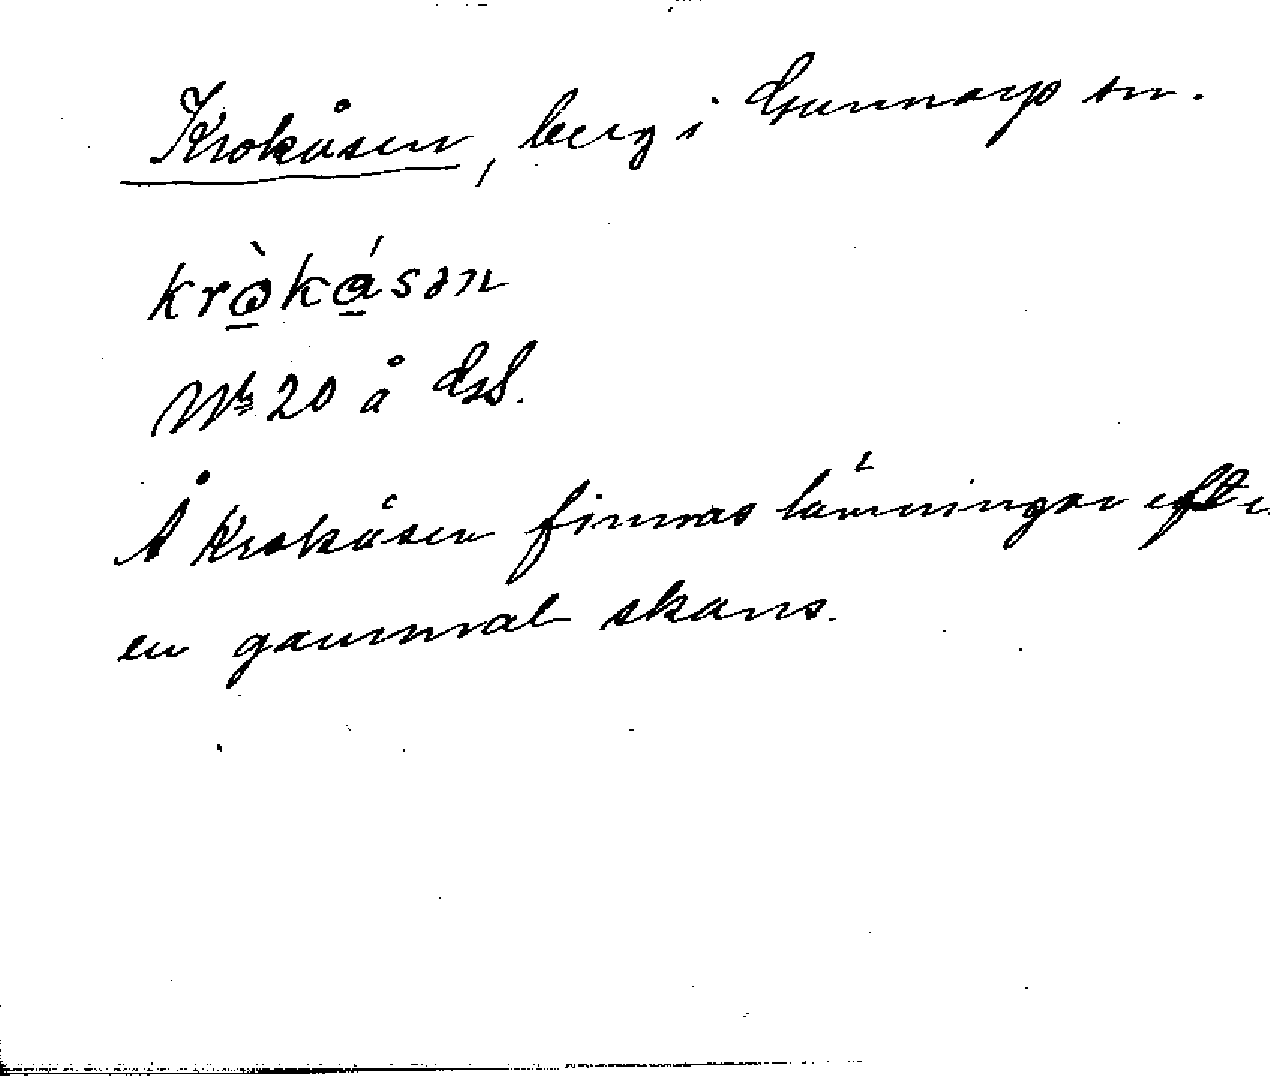 Krokåsen, berg i Gunnarp sn.
kròkásən
No 20 å GS.
Å Krokåsen finnas lämningar efte
en gammal skans.